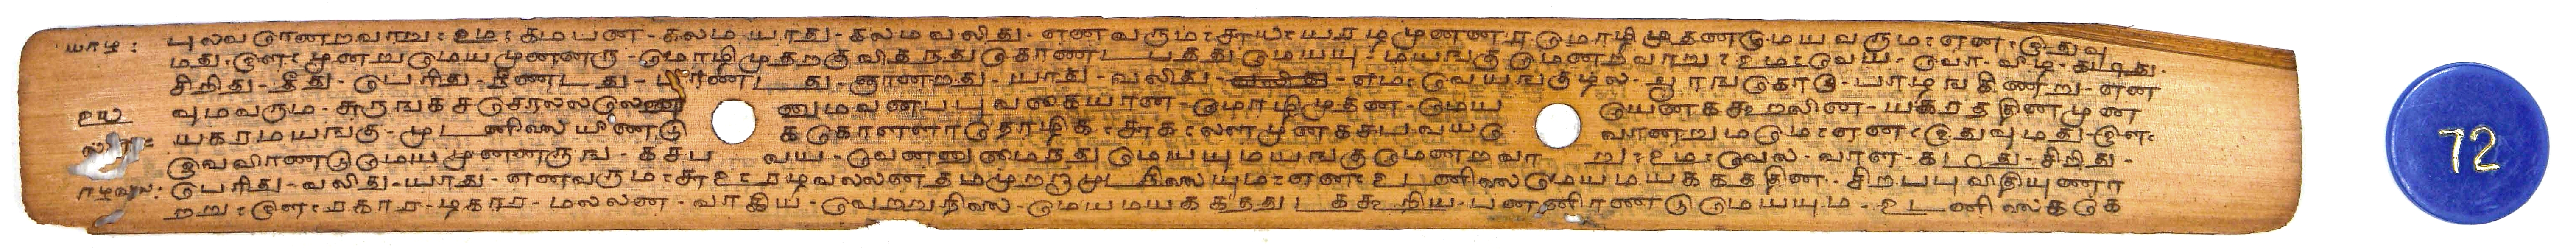 யாழ: புலவ ணொனறவாறு: உம: கமபண - கலம யாது - கலம வலிது - எனவரும: சாய: யரழ முனனர மொழி முதனமெய வரும: என: இதுவு
மது: இள: மூனறுமெய முனனரு - மொழிமுதறகுவிகநது கொணட பததுமெயயு - மயஙகுமெனறவாறு: உம: வேய - வேர - வீழ - கடிது.
சிறிது - தீது - பெரிது - நீணடது - மாணடது - ஞானறது - யாது - வலிது - எம: வெயஙகுழல - ஆரஙகொடு - பாழஙகிணறு - என
உய வுமவரும - சுருஙக சசொலல னுமவனபபுவகையான - மொழிமுதன - மெய யெனககூறலின - யகரததினமுன
யகரமயஙகு - முடனிலை யினறு ககொளளாதொழிக: சுக: லளமுனகசபவய வொனறுமடும: என: இதுவுமது-இள:
இவவிரணடுமெயமுனனருங - கசப வய - வெனனுமைநதுமெயயுமயஙகுமெனறவா று: உம: வேல - வாள - கடிது - சிறிது -
ரழவல: பெரிது - வலிது - யாது - எனவரும: சஉ: ரழவலலன தமமுறறமுடனிலையும: என: உடனிலைமெயமயககததின - சிறபபுவிதியுணர
றறு: இள: ரகார - ழகார - மலலன - வாகிய - வெறறுநிலை - மெயமயககதது டககூறிய - பனனிரணடுமெயயும - உடனிலை
72